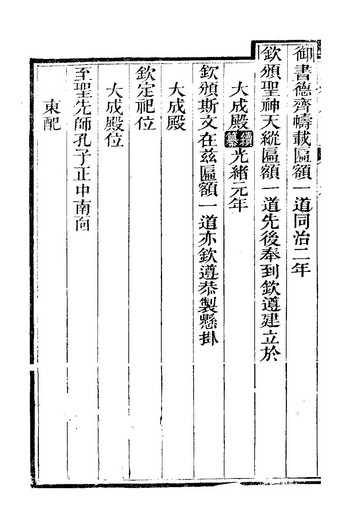 御書德齊幬載匾額一道同治二年
欽頒聖神天縱匾額一道先後奉到欽遵建立於
大成殿續纂光緒元年
欽頒斯文在兹匾額一道亦欽遵恭製懸掛
大成殿
欽定祀位
大成殿位
至聖先師孔子正中南向
東配